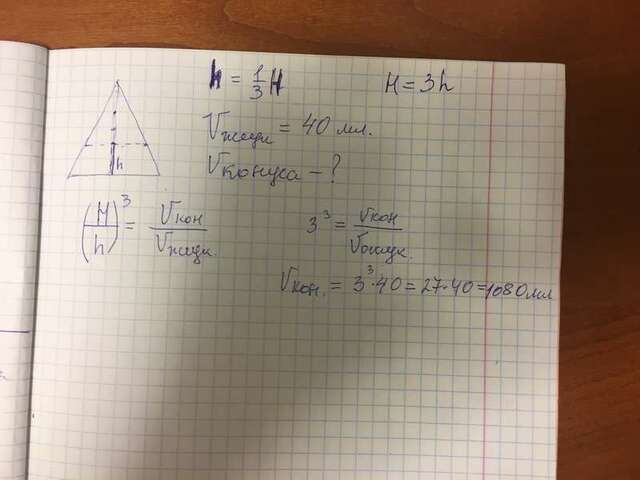 h = 1/3 H
H = 3h
Vжидк = 40 мл.
Vконуса - ?
h
(H/h)³ = Vкон/Vжидк.
3³ = Vкон/Vжидк.
Vкон. = 3³·40 = 27·40 = 1080 мл